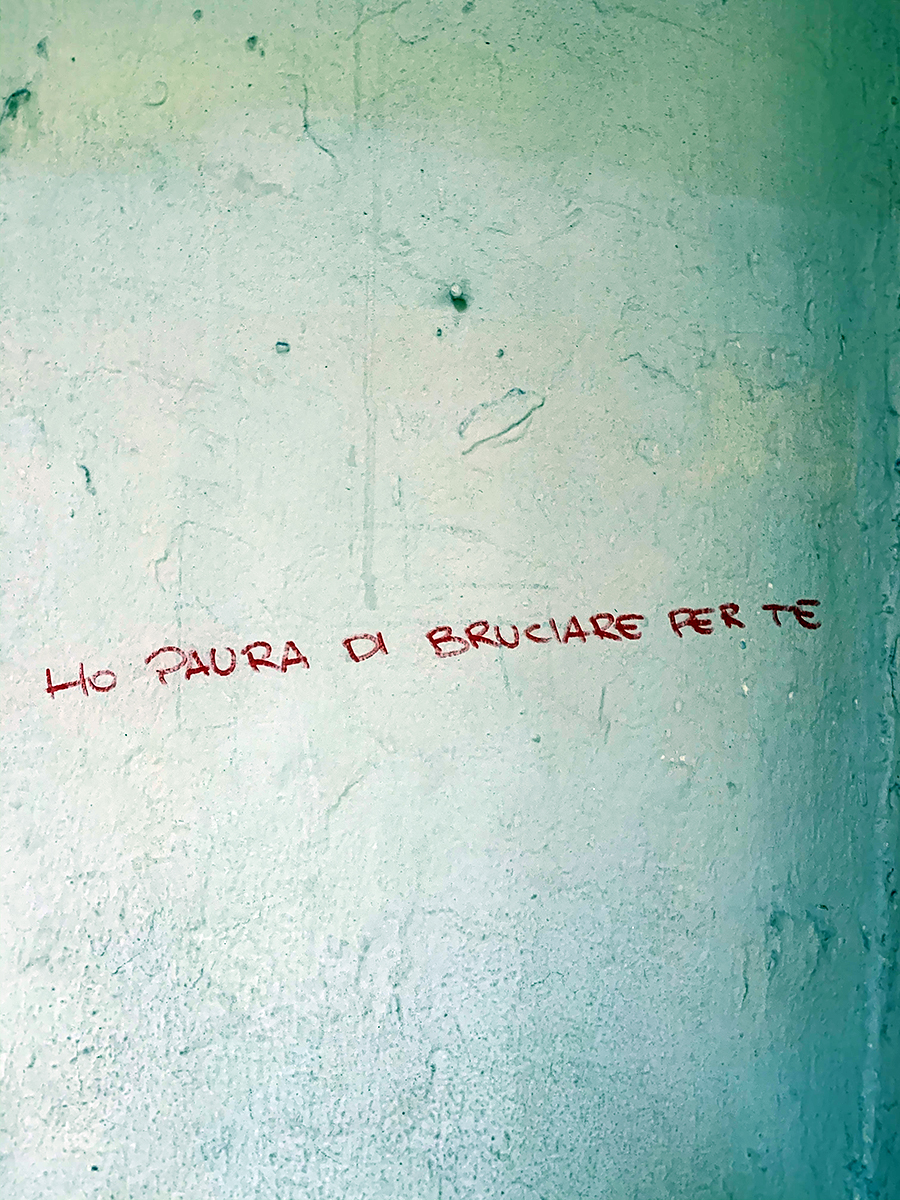 HO PAURA DI BRUCIARE PER TE